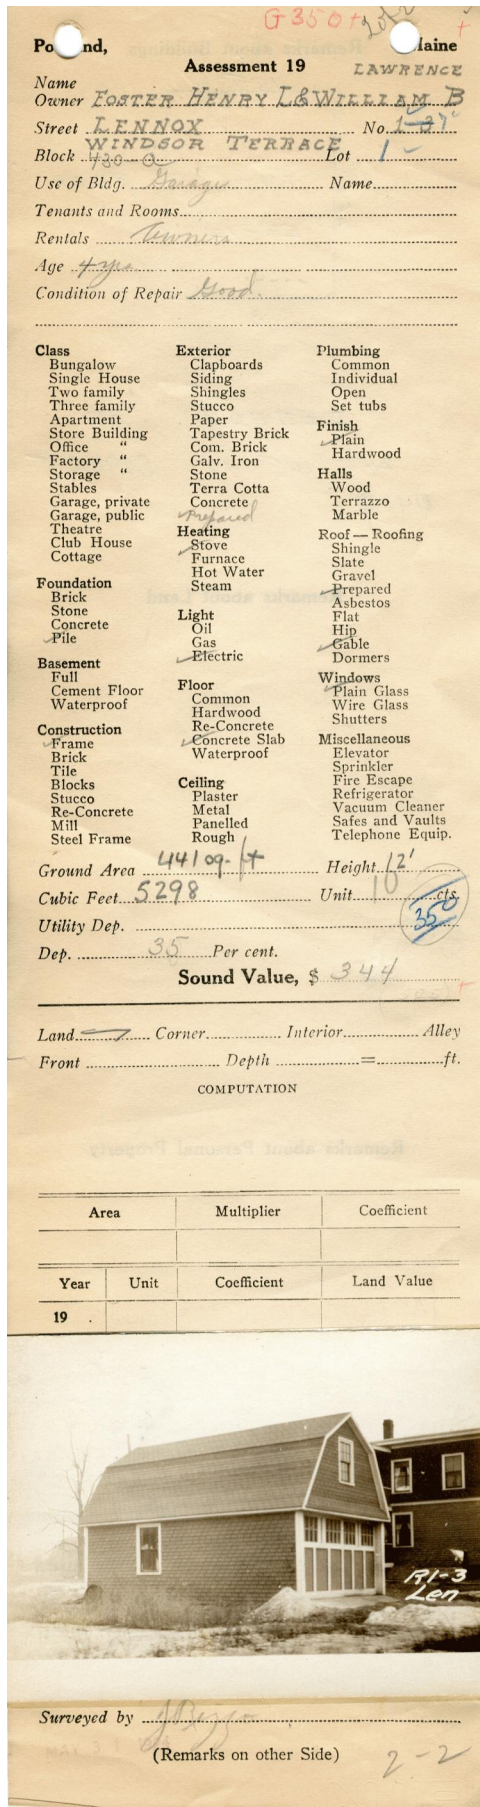 G 350+
Lot 2
Po nd, Maine
Assessment 19
LAWRENCE
Name
Owner FOSTER HENRY L & WILLIAM B
Street LENNOX No. 1-37
WINDSOR TERRACE
Block 430-A Lot 1
Use of Bldg. Garage Name
Tenants and Rooms
Rentals Owners
Age 4 yrs
Condition of Repair Good
Class
Bungalow
Single House
Two family
Three family
Apartment
Store Building
Office "
Factory "
Storage "
Stables
Garage, private
Garage, public
Theatre
Club House
Cottage
Foundation
Brick
Stone
Concrete
Pile
Basement
Full
Cement Floor
Waterproof
Construction
Frame
Brick
Tile
Blocks
Stucco
Re-Concrete
Mill
Steel Frame
Exterior
Clapboards
Siding
Shingles
Stucco
Paper
Tapestry Brick
Com. Brick
Galv. Iron
Stone
Terra Cotta
Concrete
Prepared
Heating
Stove
Furnace
Hot Water
Steam
Light
Oil
Gas
Electric
Floor
Common
Hardwood
Re-Concrete
Concrete Slab
Waterproof
Ceiling
Plaster
Metal
Panelled
Rough
Plumbing
Common
Individual
Open
Set tubs
Finish
Plain
Hardwood
Halls
Wood
Terrazzo
Marble
Roof — Roofing
Shingle
Slate
Gravel
Prepared
Asbestos
Flat
Hip
Gable
Dormers
Windows
Plain Glass
Wire Glass
Shutters
Miscellaneous
Elevator
Sprinkler
Fire Escape
Refrigerator
Vacuum Cleaner
Safes and Vaults
Telephone Equip.
Ground Area 441 sq. ft Height 12'
Cubic Feet 5298 Unit 10 cts.
350
Utility Dep.
Dep. 35 Per cent.
Sound Value, $ 344
Land Corner Interior Alley
Front Depth = ft.
COMPUTATION
Area Multiplier Coefficient
Year Unit Coefficient Land Value
19 .
R1-3
Len
Surveyed by
(Remarks on other Side)
2-2